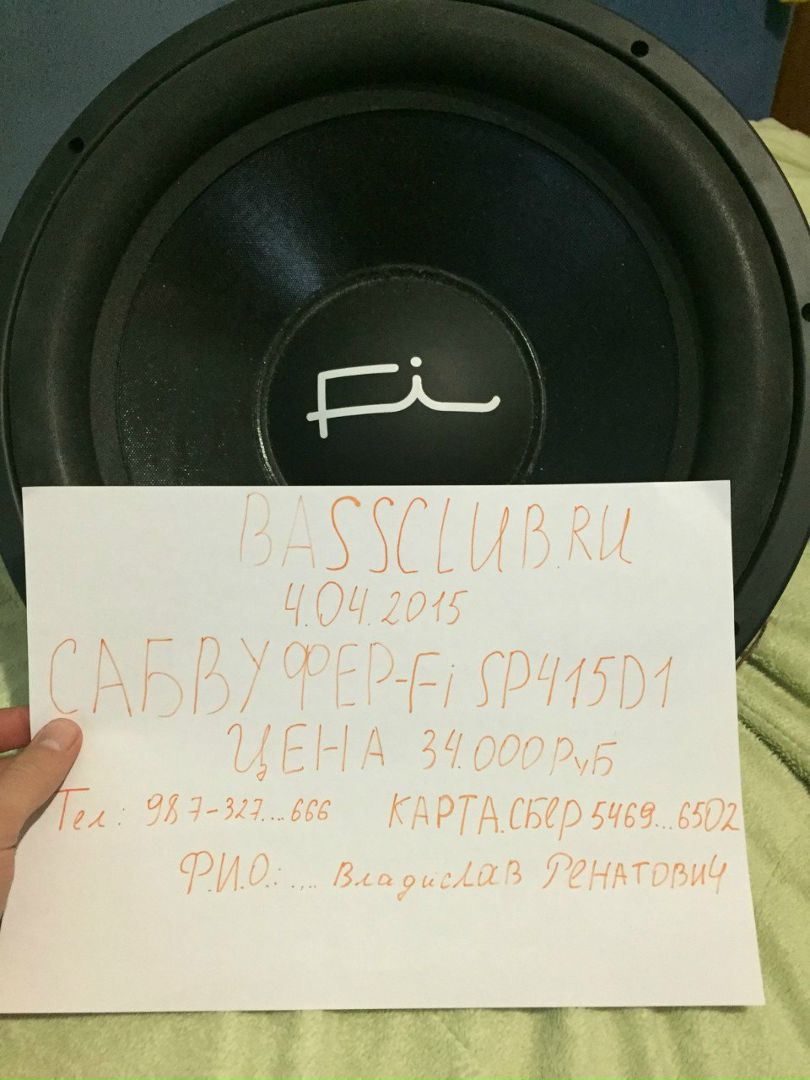 Fi
BASSCLUB.RU
4.04.2015
САБВУФЕР-Fi SP415D1
ЦЕНА 34.000РУБ
Тел: 987-327....666 КАРТА.СБЕР 5469...6502
Ф.И.О.:.... Владислав РЕНАТОВИЧ